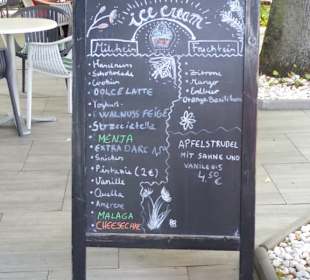 ice cream
Milcheis
Fruchteis
Haselnuss
Schokolade
Cookies
DOLCE LATTE
Joghurt
WALNUSS FEIGE
Stracciatella
MENTA
EXTRA DARC
Snickers
Pistazie (2€)
Vanille
Amarena
MALAGA
CHEESECAKE
Zitrone
Mango
Erdbeer
Orange Basilikum
APFELSTRUDEL
MIT SAHNE UND
VANILLEEIS
4,50 €